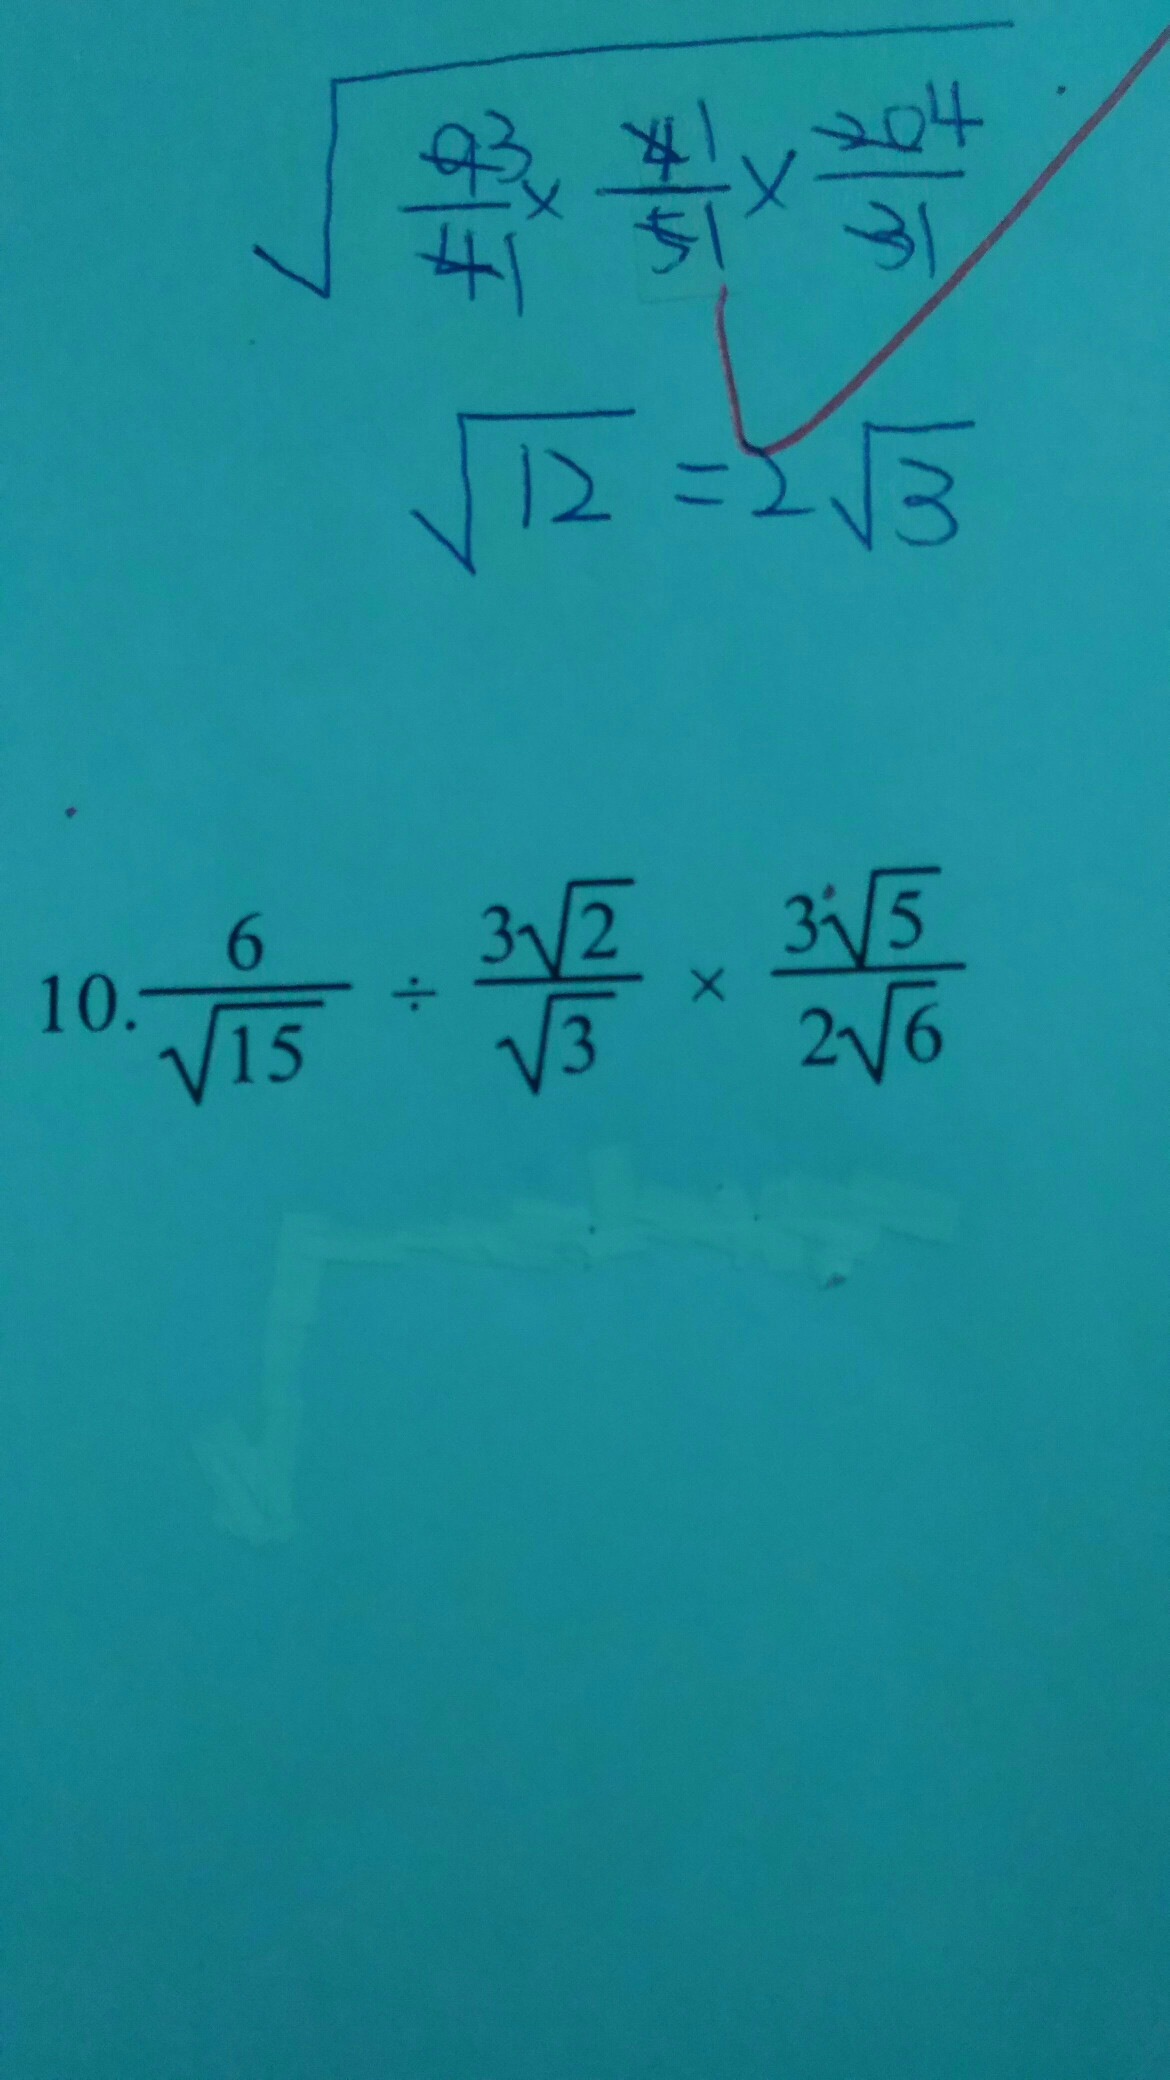 √(93/41 × 41/51 × 204/31)
√12 = 2√3
10. 6/√15 ÷ 3√2/√3 × 3√5/2√6